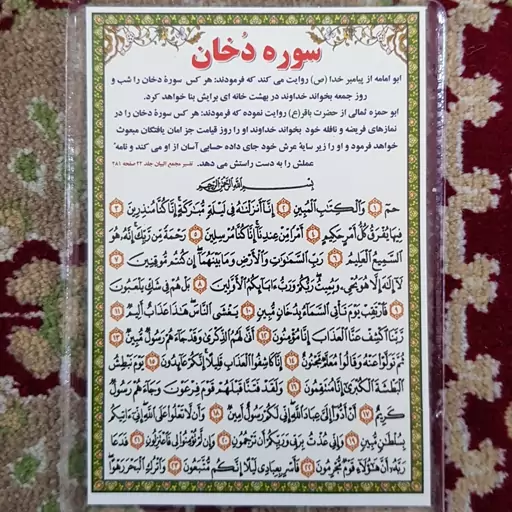 سوره دُخان
ابو امامه از پیامبر خدا (ص) روایت می کند که فرمودند: هر کس سورهٔ دخان را شب و
روز جمعه بخواند خداوند در بهشت خانه ای برایش بنا خواهد کرد.
ابو حمزه ثمالی از حضرت باقر(ع) روایت نموده که فرمودند: هر کس سورهٔ دخان را در
نمازهای فریضه و نافله خود بخواند خداوند او را روز قیامت جز امان یافتگان مبعوث
خواهد فرمود و او را زیر سایهٔ عرش خود جای داده حسابی آسان از او می کند و نامهٔ
عملش را به دست راستش می دهد. تفسیر مجمع البیان جلد ۲۲ صفحه ۲۸۱
بِسْمِ اللَّهِ الرَّحْمٰنِ الرَّحِيمِ
حم ﴿١﴾ وَالْكِتَابِ الْمُبِينِ ﴿٢﴾ إِنَّا أَنْزَلْنَاهُ فِي لَيْلَةٍ مُبَارَكَةٍ إِنَّا كُنَّا مُنْذِرِينَ ﴿٣﴾
فِيهَا يُفْرَقُ كُلُّ أَمْرٍ حَكِيمٍ ﴿٤﴾ أَمْرًا مِنْ عِنْدِنَا إِنَّا كُنَّا مُرْسِلِينَ ﴿٥﴾ رَحْمَةً مِنْ رَبِّكَ إِنَّهُ هُوَ
السَّمِيعُ الْعَلِيمُ ﴿٦﴾ رَبِّ السَّمَاوَاتِ وَالْأَرْضِ وَمَا بَيْنَهُمَا إِنْ كُنْتُمْ مُوقِنِينَ ﴿٧﴾
لَا إِلَهَ إِلَّا هُوَ يُحْيِي وَيُمِيتُ رَبُّكُمْ وَرَبُّ آبَائِكُمُ الْأَوَّلِينَ ﴿٨﴾ بَلْ هُمْ فِي شَكٍّ يَلْعَبُونَ
﴿٩﴾ فَارْتَقِبْ يَوْمَ تَأْتِي السَّمَاءُ بِدُخَانٍ مُبِينٍ ﴿١٠﴾ يَغْشَى النَّاسَ هَذَا عَذَابٌ أَلِيمٌ ﴿١١﴾
رَبَّنَا اكْشِفْ عَنَّا الْعَذَابَ إِنَّا مُؤْمِنُونَ ﴿١٢﴾ أَنَّى لَهُمُ الذِّكْرَى وَقَدْ جَاءَهُمْ رَسُولٌ مُبِينٌ ﴿١٣﴾
ثُمَّ تَوَلَّوْا عَنْهُ وَقَالُوا مُعَلَّمٌ مَجْنُونٌ ﴿١٤﴾ إِنَّا كَاشِفُو الْعَذَابِ قَلِيلًا إِنَّكُمْ عَائِدُونَ ﴿١٥﴾ يَوْمَ نَبْطِشُ
الْبَطْشَةَ الْكُبْرَى إِنَّا مُنْتَقِمُونَ ﴿١٦﴾ وَلَقَدْ فَتَنَّا قَبْلَهُمْ قَوْمَ فِرْعَوْنَ وَجَاءَهُمْ رَسُولٌ
كَرِيمٌ ﴿١٧﴾ أَنْ أَدُّوا إِلَيَّ عِبَادَ اللَّهِ إِنِّي لَكُمْ رَسُولٌ أَمِينٌ ﴿١٨﴾ وَأَنْ لَا تَعْلُوا عَلَى اللَّهِ إِنِّي آتِيكُمْ
بِسُلْطَانٍ مُبِينٍ ﴿١٩﴾ وَإِنِّي عُذْتُ بِرَبِّي وَرَبِّكُمْ أَنْ تَرْجُمُونِ ﴿٢٠﴾ وَإِنْ لَمْ تُؤْمِنُوا لِي فَاعْتَزِلُونِ ﴿٢١﴾ فَدَعَا
رَبَّهُ أَنَّ هَؤُلَاءِ قَوْمٌ مُجْرِمُونَ ﴿٢٢﴾ فَأَسْرِ بِعِبَادِي لَيْلًا إِنَّكُمْ مُتَّبَعُونَ ﴿٢٣﴾ وَاتْرُكِ الْبَحْرَ رَهْوًا